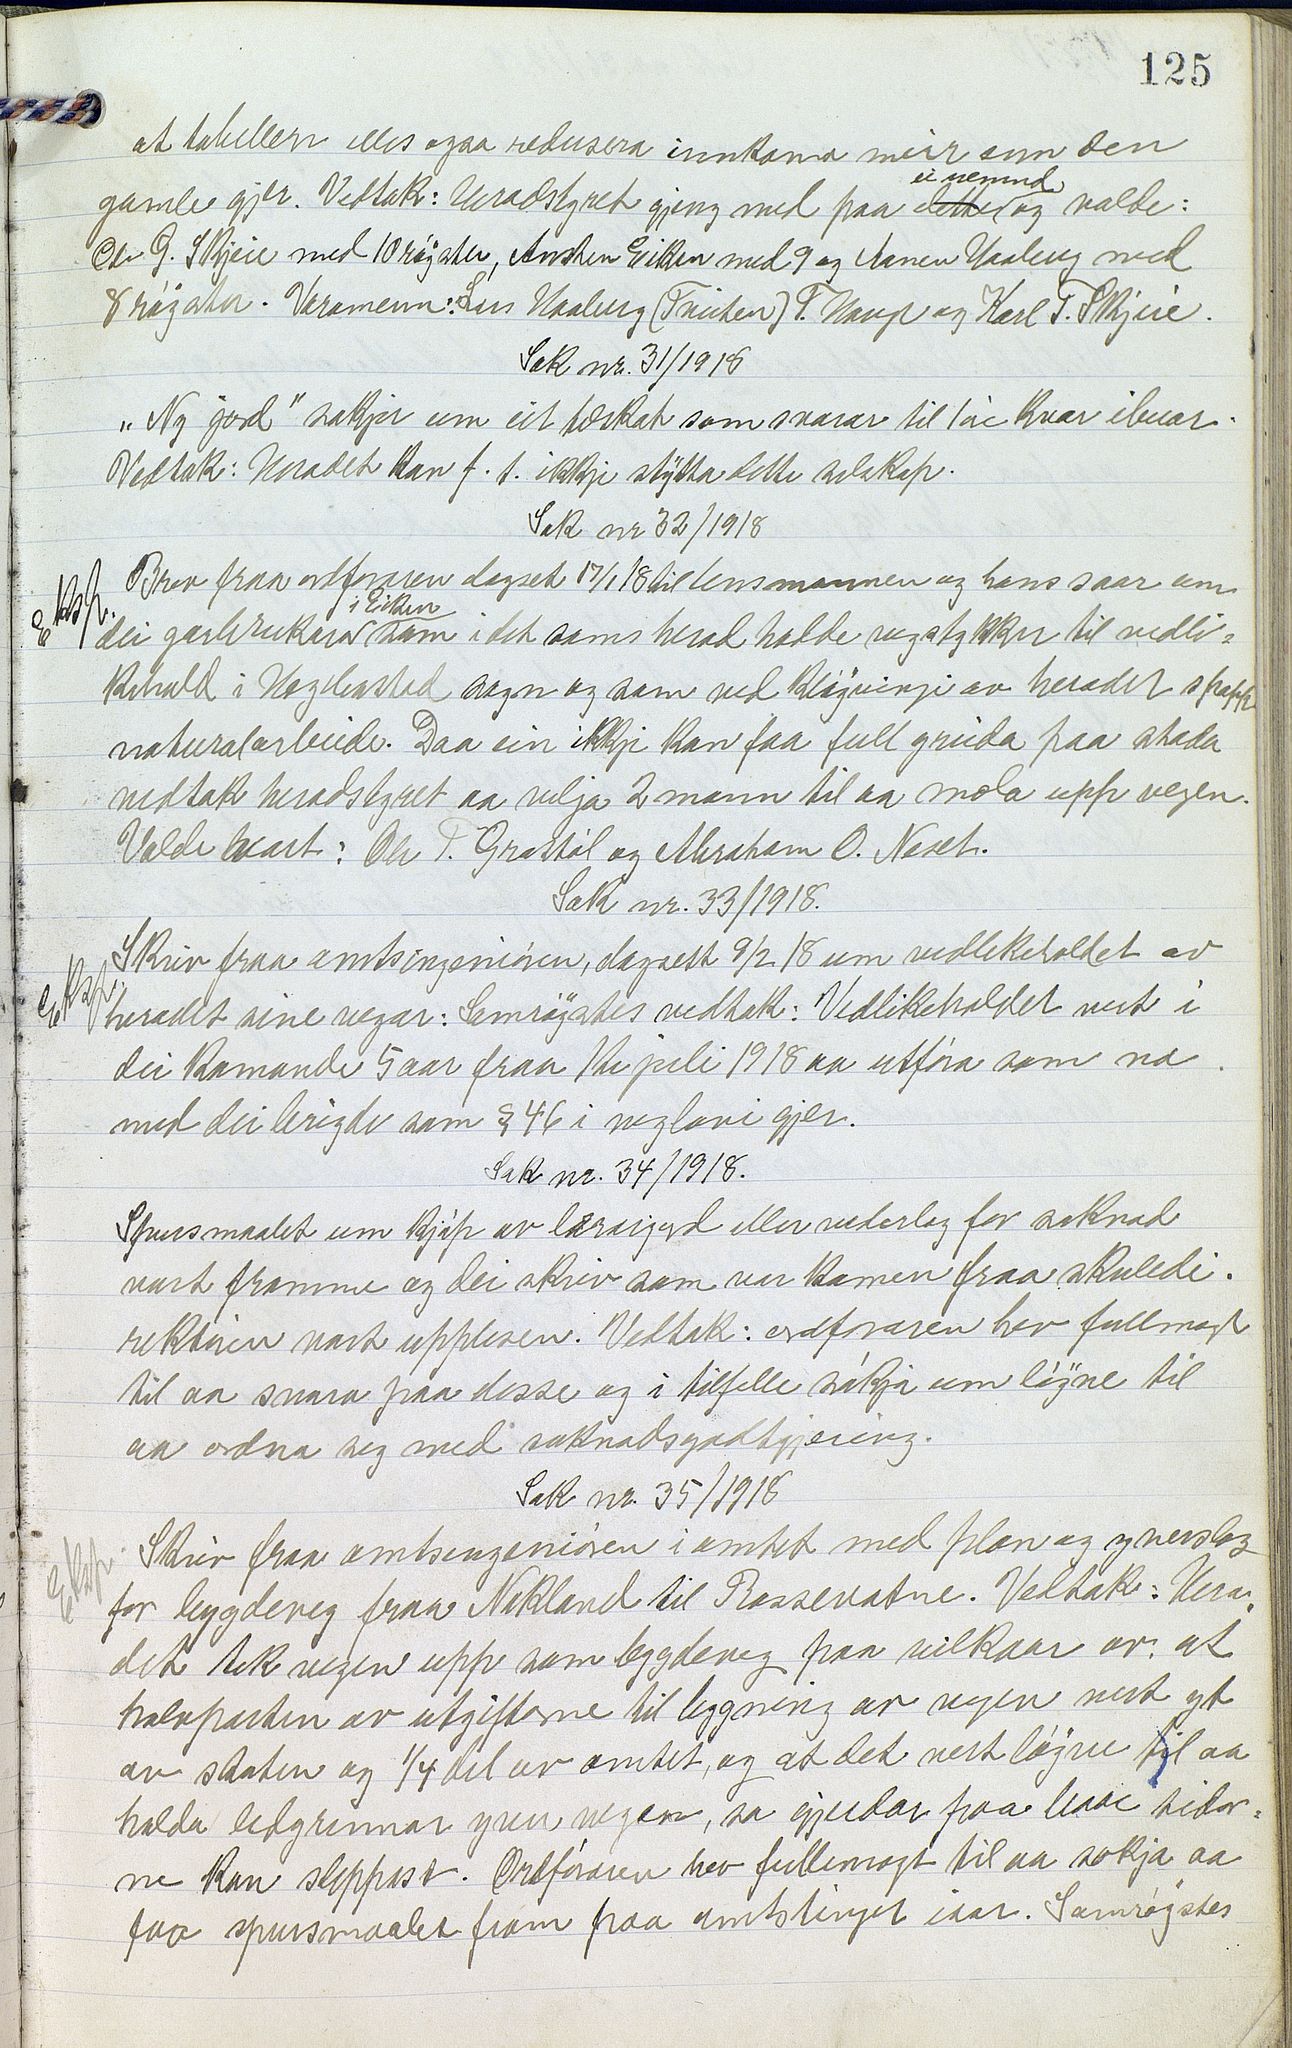 125
at tabellen elles ogsaa redusera innkoma meir enn den
gamle gjer. Vedtak: Heradstyret gjeng med paa ei nemnd og valde:
Ole G. Skjeie med 10 røyster, Austen Eiken med 9 og Aanen Haaberg med
8 røyster. Varamenn: Lars Haaberg (Tveiten) T. Haugr og Karl T. Skjeie.
Sak nr. 31/1918
„Ny jord" søkjer um eit tilskot som svarar til 1 øre kvar ibuar.
Vedtak: Heradet kan f. t. ikkje stytta dette selskap.
Sak nr 32/1918
Eksp.
Brev fraa ordføraren dagset 17/1 18 til lensmannen og hans svar um
dei gardbrukarar i Eiken som i det sams herad hadde vegstykkjer til vedli-
kehald i Hægebostad sogn og som ved kløyvingi av heradet slapp
naturalarbeide. Daa ein ikkje kan faa full greida paa stoda
vedtok heradstyret aa velja 2 mann til aa mæla upp vegen.
Valde vart: Ole T. Grastøl og Abraham O. Neset.
Sak nr. 33/1918.
Eksp.
Skriv fraa amtsingeniøren, dagsett 9/2 18 um vedlikeholdet av
heradet sine vegar: Samrøystes vedtak: Vedlikehaldet vert i
dei komande 5 aar fraa 1ste juli 1918 aa utføra som no
med dei brigde som § 46 i veglovi gjer.
Sak nr. 34/1918.
Spursmaalet um kjøp av lærarjord eller vederlag for saknad
vart framme og dei skriv som var komen fraa skuledi-
rektøren vart upplesen. Vedtak: ordføraren hev fullmagt
til aa svara paa desse og i tilfelle søkja um løyve til
aa ordna seg med saknadsgodtgjering.
Sak nr. 35/1918
Eksp.
Skriv fraa amtsingeniøren i amtet med plan og yverslag
for bygdeveg fraa Nøkland til Rossevatne. Vedtak: Hera-
det tek vegen upp som bygdeveg paa vilkaar av: at
halvparten av utgifterne til bygning av vegen vert yt
av staten og 1/4 del av amtet, og at det vert løyve til aa
halda ledgrinnar yver vegen, so gjerdar paa baae sidor-
ne kan sleppast. Ordføraren hev fullmagt til aa søkja aa
faa spursmaalet fram fraa amtstinget iaar. Samrøystes